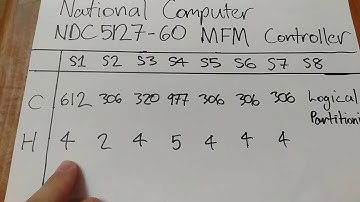 National Computer
NDC5127-60 MFM Controller
S1 S2 S3 S4 S5 S6 S7 S8
C 612 306 320 977 306 306 306 Logical
Partitioni
H 4 2 4 5 4 4 4